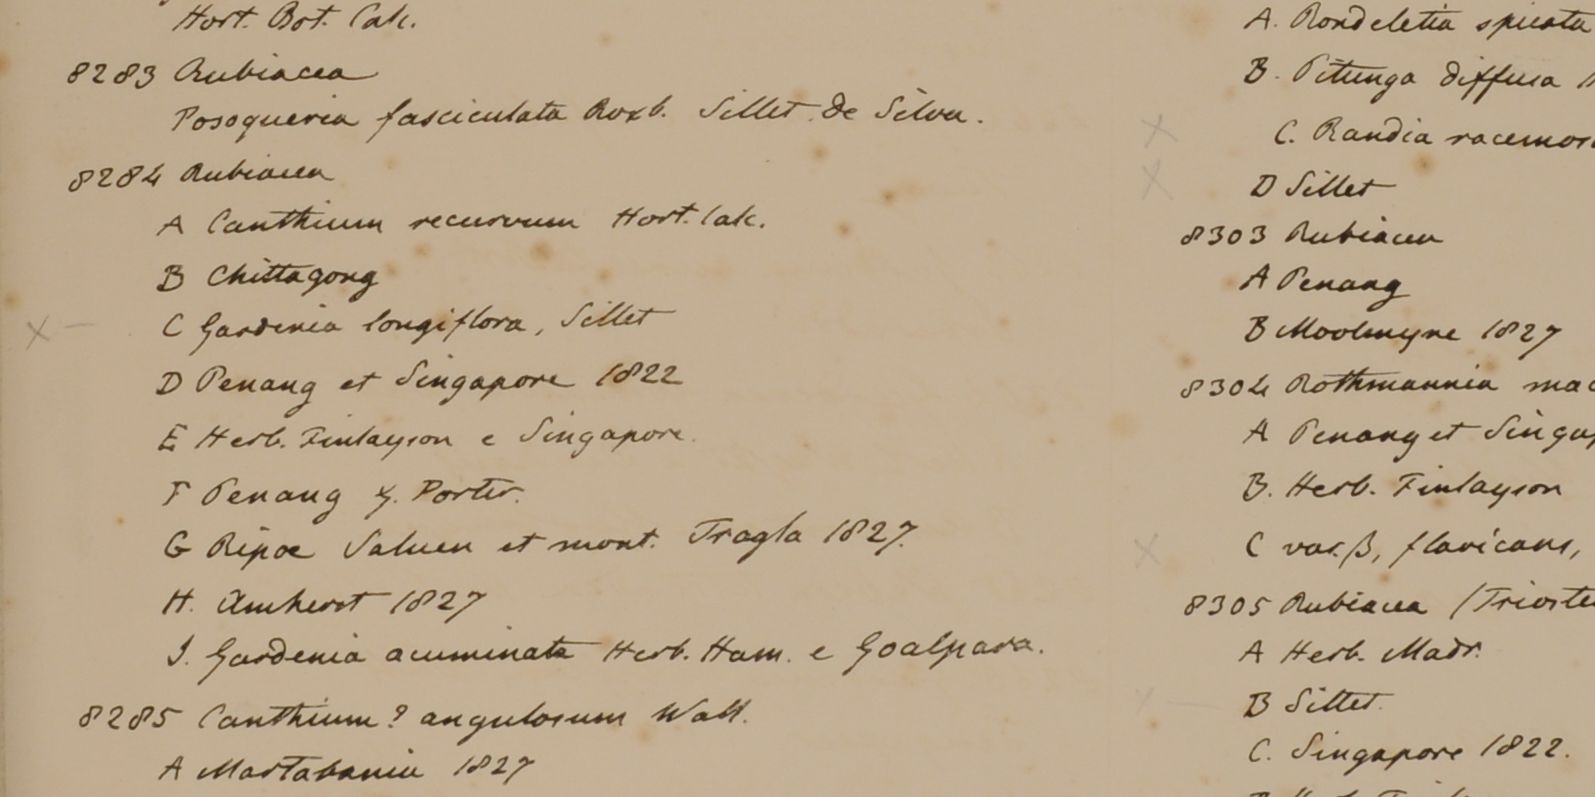 Hort. Bot. Calc.
8283 Rubiacea
Posoqueria fasciculata Roxb. Sillet de Silva.
8284 Rubiacea
A Canthium recurvum Hort. Calc.
B Chittagong
C Gardenia longiflora, Sillet
D Penang et Singapore 1822
E Herb. Finlayson e Singapore.
F Penang G. Porter.
G Ripae Saluen et mont. Tragla 1827.
H. Amherst 1827
I. Gardenia acuminata Herb. Ham. e Goalpara.
8285 Canthium? angulosum Wall.
A Martabania 1827
A. Rondeletia spicata
B. Petunga diffusa
C. Randia racemos
D Sillet
8303 Rubiacea
A Penang
B Moolmyne 1827
8304 Rothmannia mac
A Penang et Singap
B. Herb. Finlayson
C var. β, flavicans,
8305 Rubiacea (Trioste
A Herb. Madr.
B Sillet.
C. Singapore 1822.